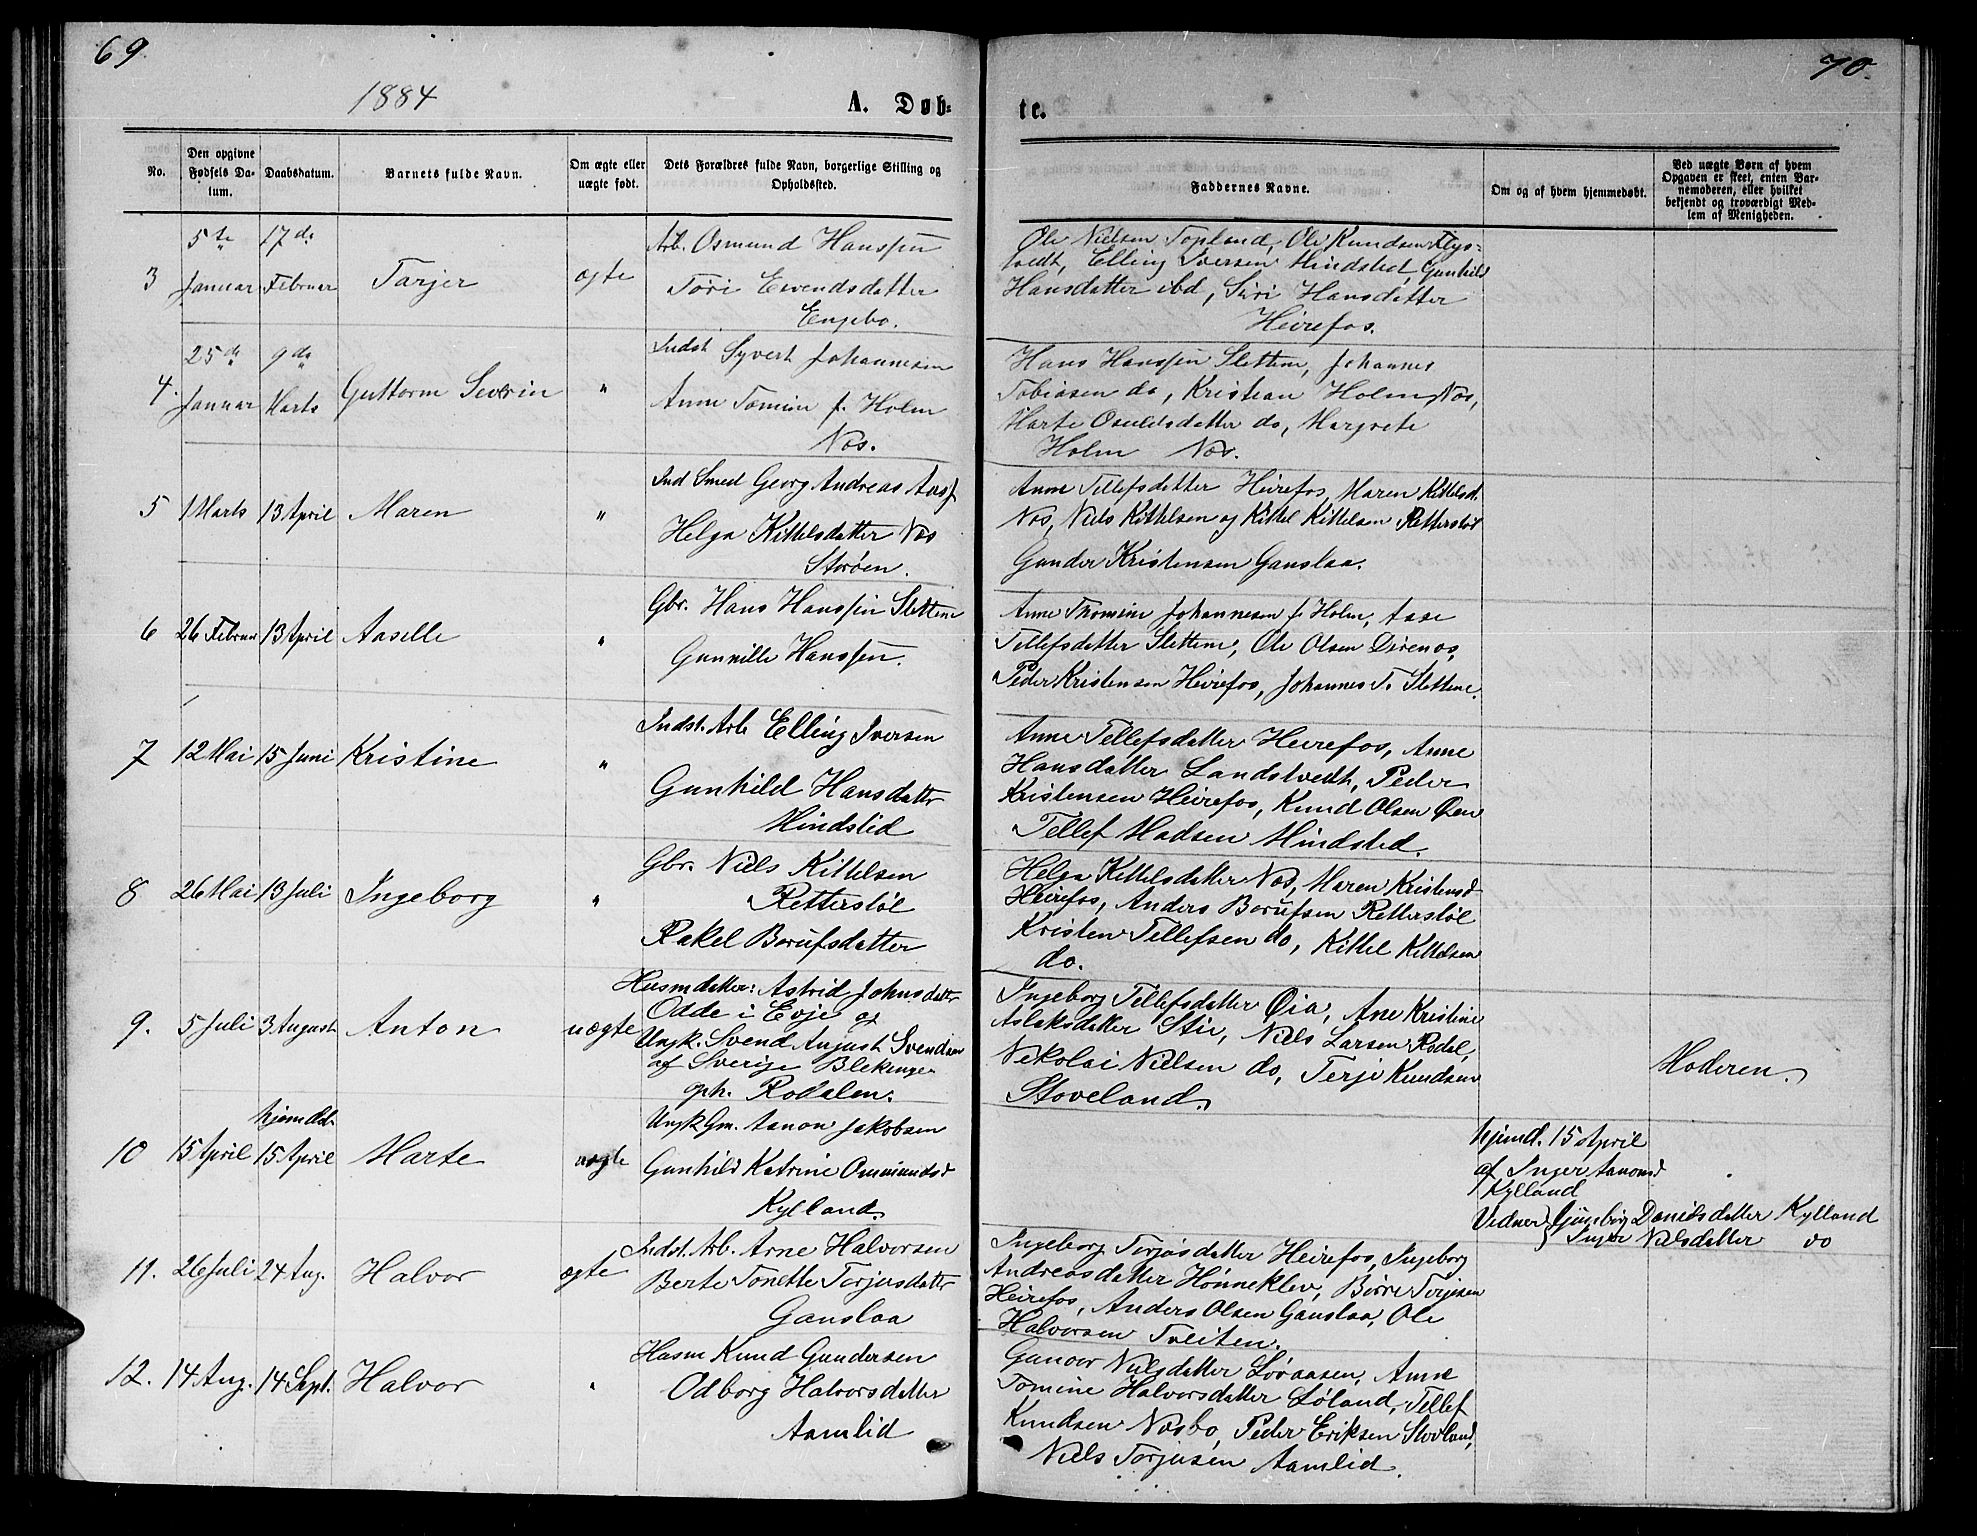 69.
70.
1884
A. Døb-
te.
No.
Den opgivne Fødsels Da-
tum.
Daabsdatum.
Barnets fulde Navn.
Om ægte eller
uægte født.
Dets Forældres fulde Navn, borgerlige Stilling og
Opholdssted.
Faddernes Navne.
Om og af hvem hjemmedøbt.
Ved uægte Børn af hvem
Opgaven er skeet, enten Bar-
nemoderen, eller hvilket
bekjendt og troværdigt Med-
lem af Menigheden.
3
5te
Januar
17de
Februar
Tarjer
ægte
Arb. Osmund Hanssen
Töri Evendsdatter
Engebo.
Ole Nielsen Topland, Ole Knudsen
tvedt, Elling Iversen Hindslid, Gunhild
Hansdatter ibd, Siri Hansdatter
Heirefos.
4.
25de
Januar
9de
Marts
Guttorm Severin
"
Indst Syvert Johannesen
Anne Tomine f. Holm
Næs.
Hans Hanssen Slettene, Johannes
Tobiasen do, Kristian Holm, Næs,
Marte Osuldsdatter do, Margrete
Holm Næs.
5
1 Marts
13 April
Maren
"
Ind Smed Georg Andreas
Helga Kittelsdatter Næs
Storøen.
Anne Tellefsdatter Heirefos, Maren Kittelsd.
Næs, Niels Kittelsen og Kittel Kittelsen Retterstøl
Gunder Kristensen Ganslaa.
6
26 Februar
13 April
Aaselle
"
Gbr. Hans Hanssen Slettene
Gunnille Hanssen.
Anne Thomine Johannesen f. Holm, Aase
Tellefsdatter Slettene, Ole Olsen Direnæs,
Peder Kristensen Heirefos, Johannes T. Slettene.
7
12 Mai
15 Juni
Kristine
"
Indst. Arb Elling Iversen
Gunhild Hansdatter
Hindslid
Anne Tellefsdatter Heirefos, Anne
Hansdatter Landstvedt, Peder
Kristensen Heirefos, Knud Olsen Øen
Tellef Madsen Hindslid.
8
26 Mai
13 Juli
Ingeborg
"
Gbr. Niels Kittelsen
Retterstøl
Rakel Borufsdatter
Helga Kittelsdatter Næs, Maren Kristensd
Heirefos, Anders Borufsen Retterstøl
Kristen Tellefsen do, Kittel Kittelsen
do.
9.
5 Juli
3 August
Anton
uægte
Husmdatter: Astrid Johnsdatter
Odde i Evje og
Ungk. Svend August Svendsen
af Sverige Blekinge
oph. Rodalen.
Ingeborg Tellefsdatter Øia, Ane Kristine
Aslaksdatter Stie, Niels Larsen Rodal,
Nikolai Nielsen do, Terje Knudsen
Stoveland.
Moderen.
10
15 April
hjemdbt.
15 April
Marte
uægte
Ungk Gm. Aanon Jakobsen
Gunhild Katrine Ommundsd
Kylland.
hjemd. 15 April
af Inger Aanonsd
Kylland
Vidner Gunbjør Danielsdatter Kylland
Inger Nilsdatter do
11.
26 Juli
24 Aug.
Halvor
ægte
Indst. Arb. Arne Halvorsen
Berte Tonette Torjusdatter
Ganslaa
Ingeborg Torjusdatter Heirefos, Ingeborg
Andreasdatter Hønneklev, Børre Torjusen
Heirefos, Anders Olsen Ganslaa, Ole
Halvorsen Treiten.
12.
14 Aug.
14 Sept.
Halvor
"
Husm Knud Gundersen
Odborg Halvorsdatter
Aamlid
Gunvor Nilsdatter Løraasen, Anne
Tomine Halvorsdatter Løland, Tellef
Knudsen Næsbo, Peder Eriksen Stovland,
Niels Torjusen Aamlid.